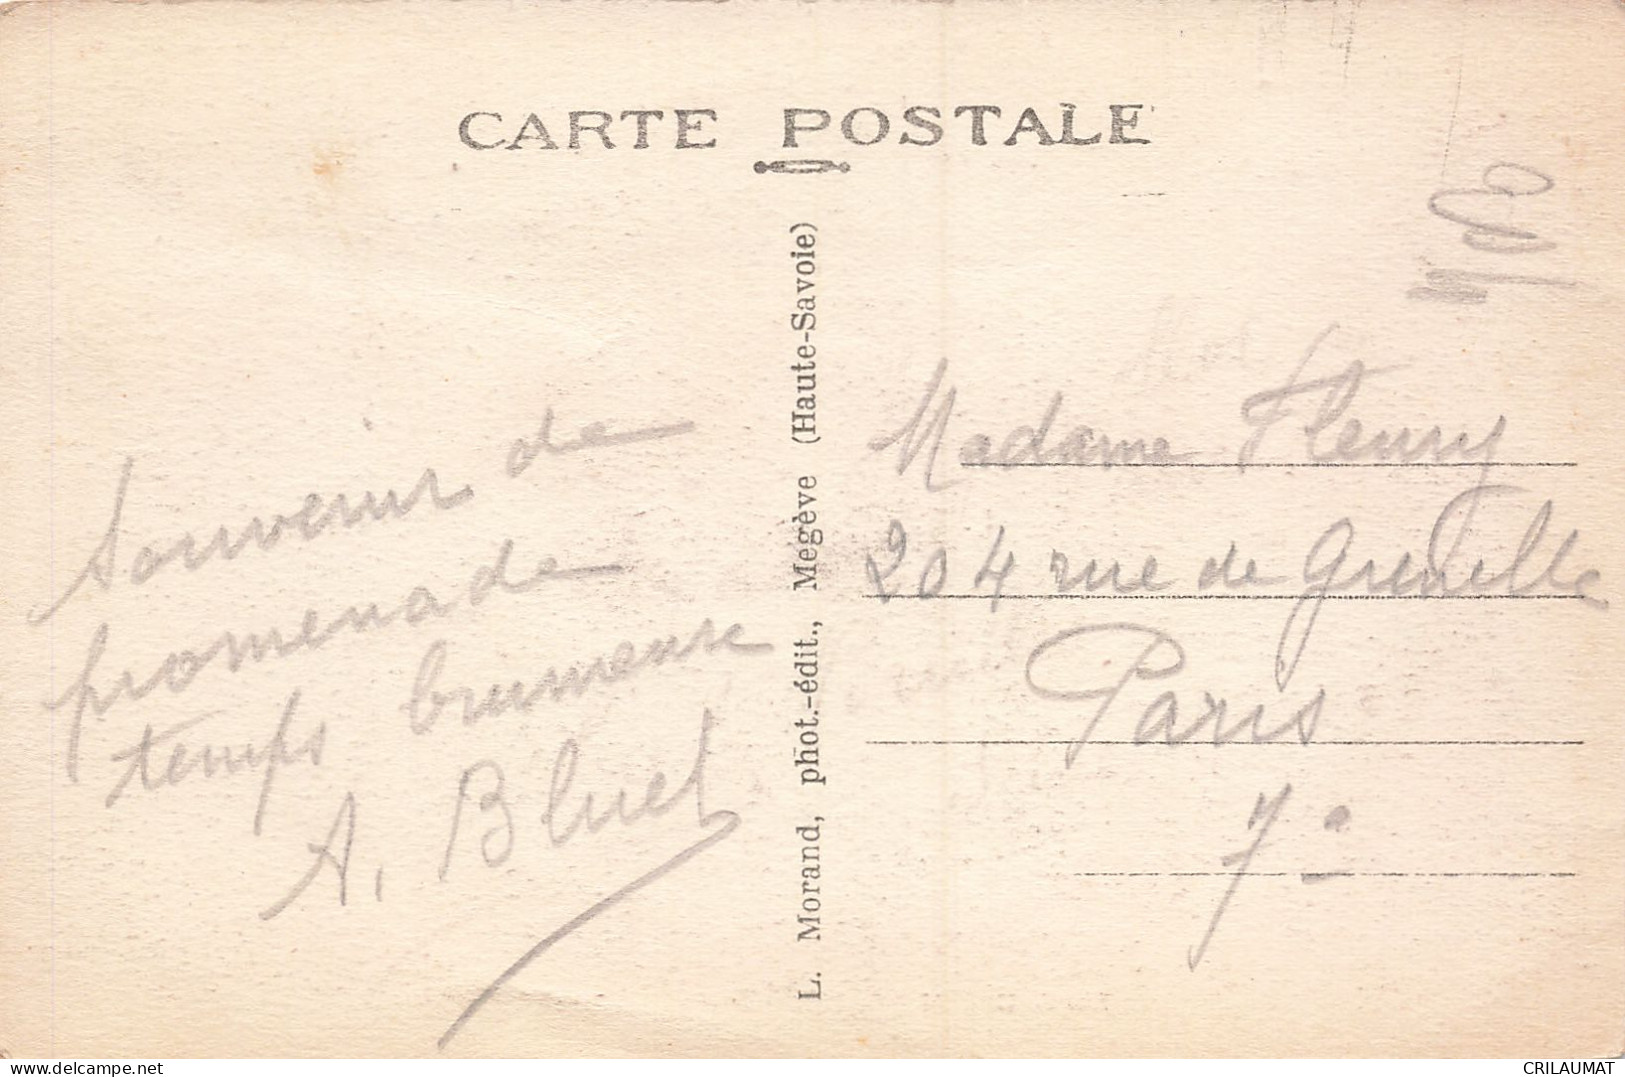 CARTE POSTALE
Souvenir de
promenade
temps brumeuse
A. Bluet
L. Morand, phot.-édit., Megève (Haute-Savoie)
Madame Fleury
204 rue de Grenelle
Paris
7e
delcampe.net
CRILAUMAT